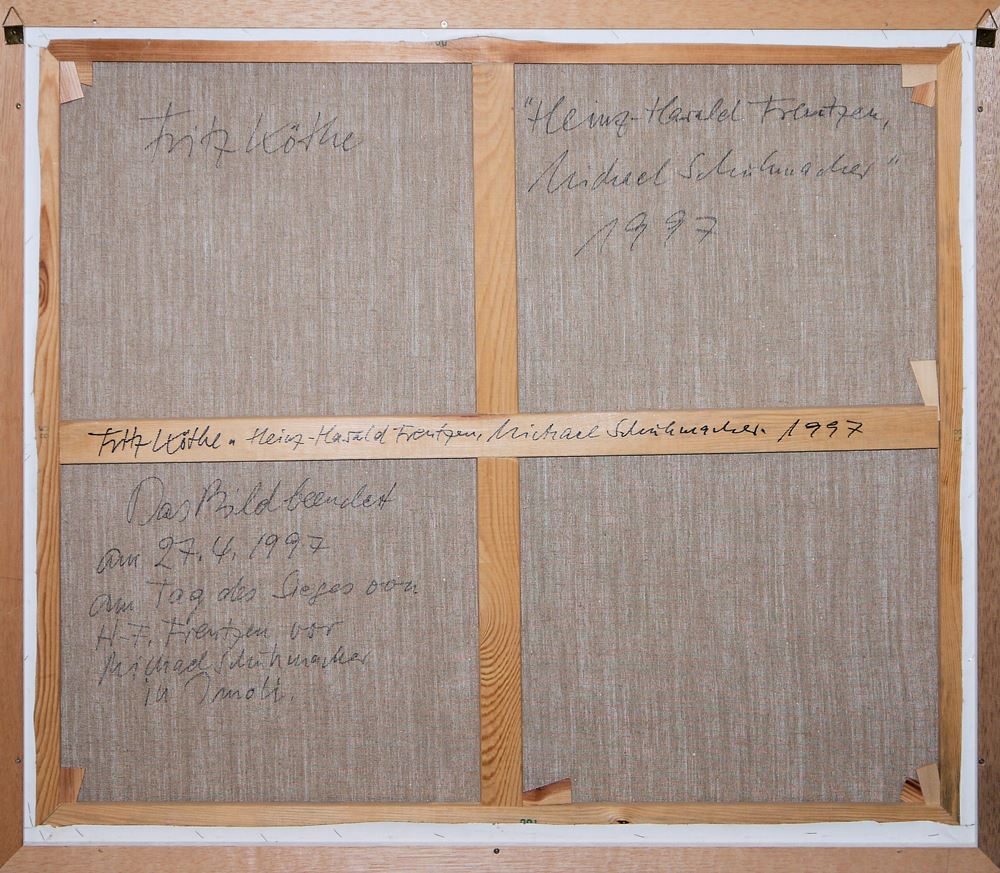 Fritz Köthe
"Heinz-Harald Frentzen,
Michael Schuhmacher"
1997
Fritz Köthe. Heinz-Harald Frentzen, Michael Schuhmacher. 1997
Das Bild beendet
am 27.4.1997
am Tag des Sieges von
H-F. Frentzen vor
Michael Schuhmacher
in Imola.